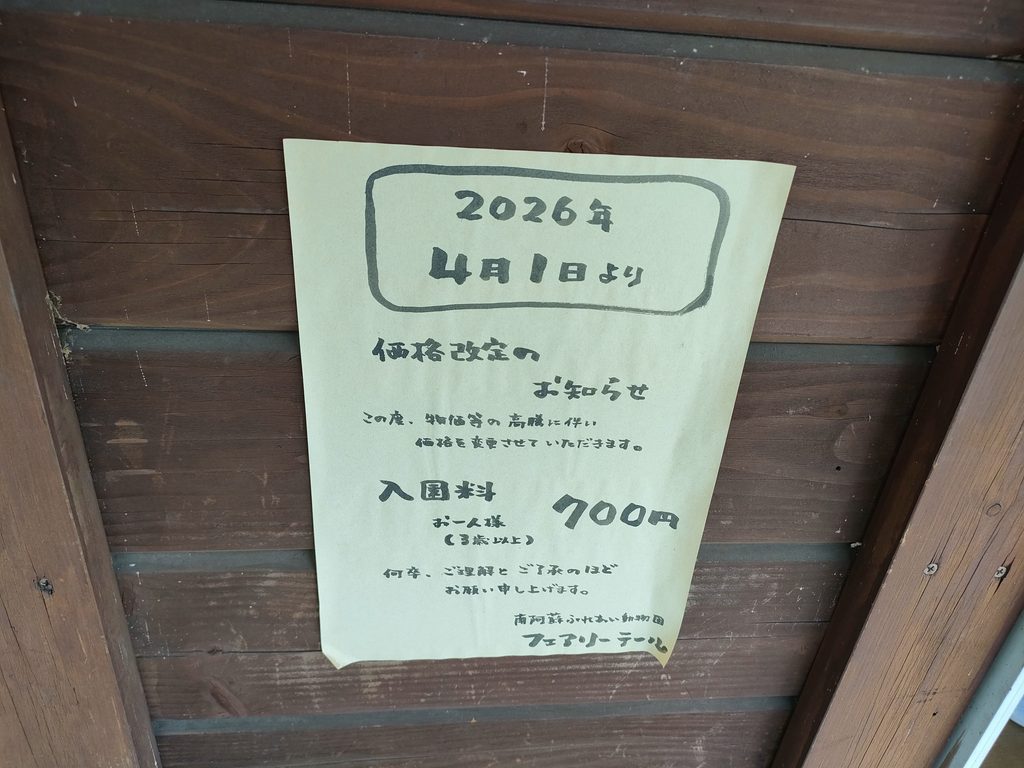 2026年
4月1日より
価格改定の
お知らせ
この度、物価等の高騰に伴い
価格を変更させていただきます。
入園料
700円
お一人様
(3歳以上)
何卒、ご理解とご了承のほど
お願い申し上げます。
南阿蘇ふれあい動物園
フェアリーテール